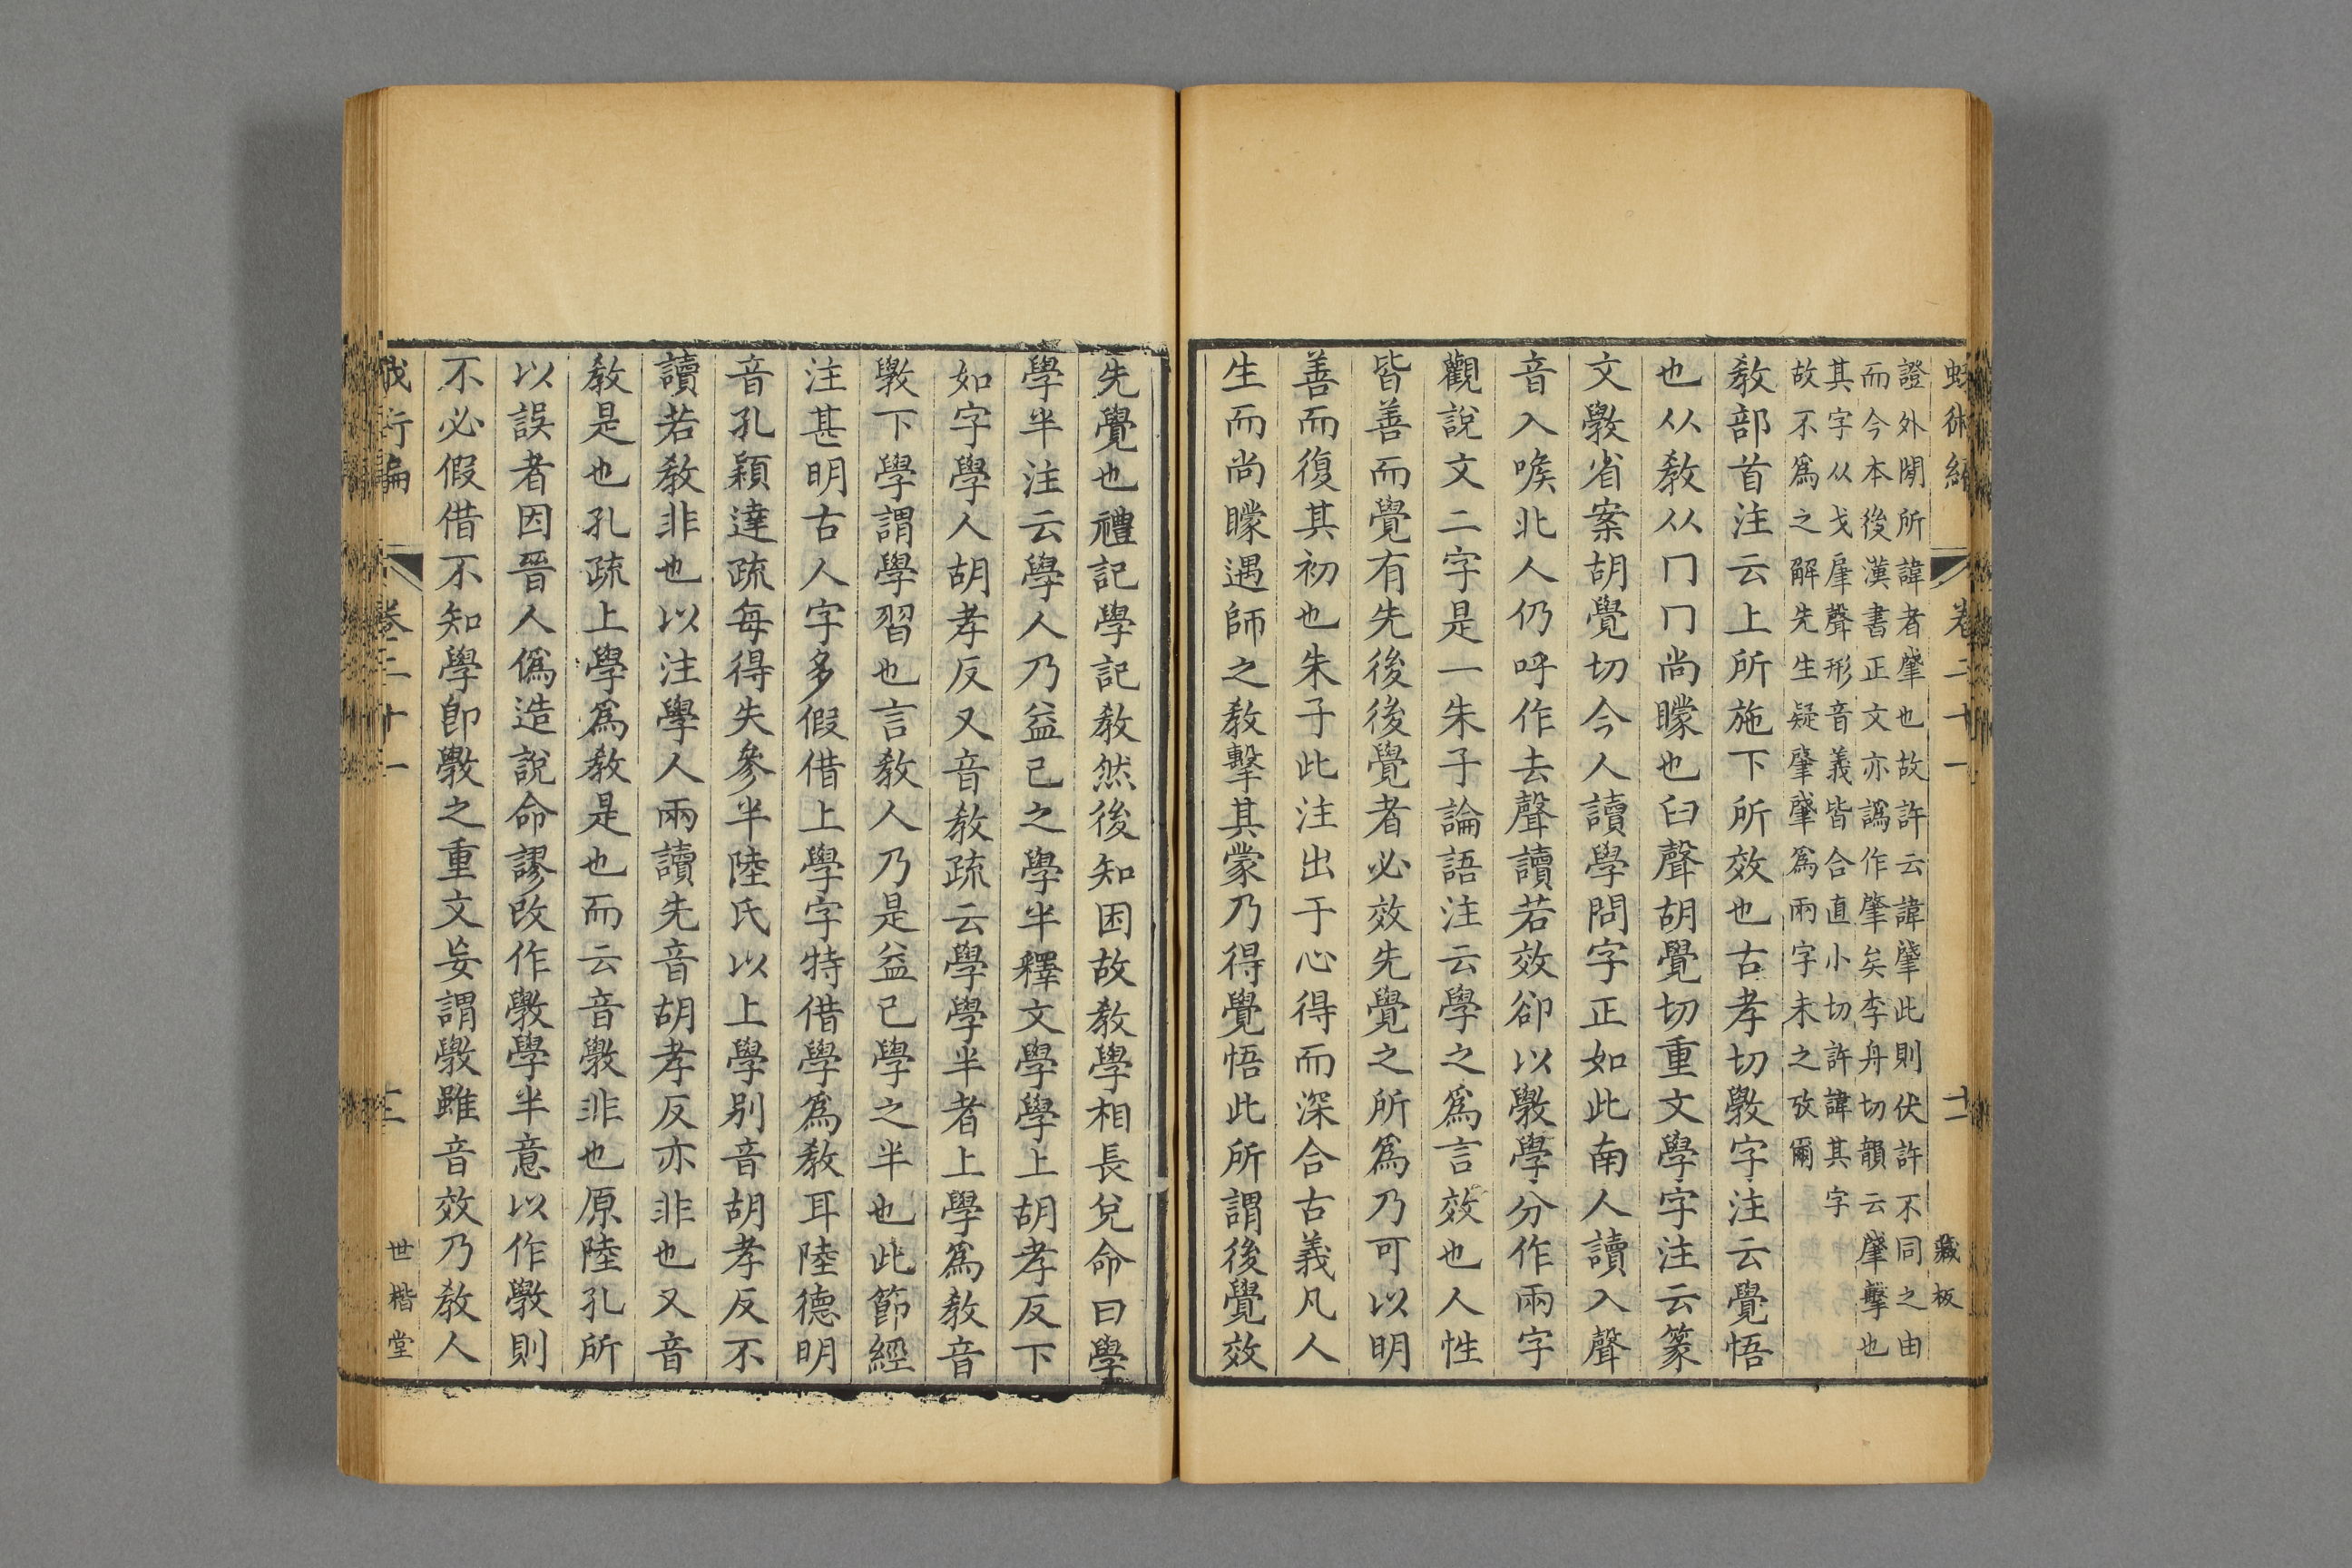 蛾術編 卷二十一 十二 藏板
證外閒所諱者肈也故許云諱肈此則伏許不同之由
而今本後漢書正文亦譌作肇矣李舟切韻云肈擊也
其字从戈肁聲形音義皆合直小切許諱其字
故不爲之解先生疑肇肈爲兩字未之攷爾
敎部首注云上所施下所效也古孝切斆字注云覺悟
也从敎从冂冂尚矇也臼聲胡覺切重文學字注云篆
文斆省案胡覺切今人讀學問字正如此南人讀入聲
音入喉北人仍呼作去聲讀若效卻以斆學分作兩字
觀說文二字是一朱子論語注云學之爲言效也人性
皆善而覺有先後後覺者必效先覺之所爲乃可以明
善而復其初也朱子此注出于心得而深合古義凡人
生而尚矇遇師之敎擊其蒙乃得覺悟此所謂後覺效
先覺也禮記學記敎然後知困故敎學相長兌命曰學
學半注云學人乃益己之學半釋文學學上胡孝反下
如字學人胡孝反又音敎疏云學學半者上學爲敎音
斆下學謂學習也言敎人乃是益己學之半也此節經
注甚明古人字多假借上學字特借學爲敎耳陸德明
音孔穎達疏每得失參半陸氏以上學別音胡孝反不
讀若敎非也以注學人兩讀先音胡孝反亦非也又音
敎是也孔疏上學爲敎是也而云音斆非也原陸孔所
以誤者因晉人僞造說命謬改作斆學半意以作斆則
不必假借不知學卽斆之重文妄謂斆雖音效乃敎人
蛾術編 卷二十一 三 世楷堂